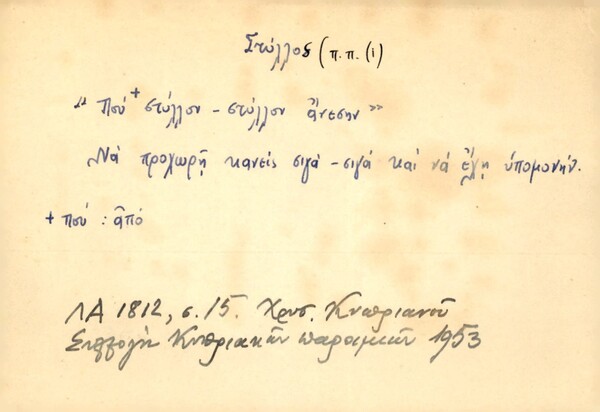 Στύλλος (π.π. (1)
"Πού + στύλλον - στύλλον ἄνεσην"
Νά προχωρῇ κανείς σιγά - σιγά καί νά ἔχῃ ὑπομονήν.
+ πού : ἀπό
ΛΑ 1812, σ. 15. Χρυσ. Κυπριανοῦ
Συλλογή Κυπριακῶν παροιμιῶν 1953